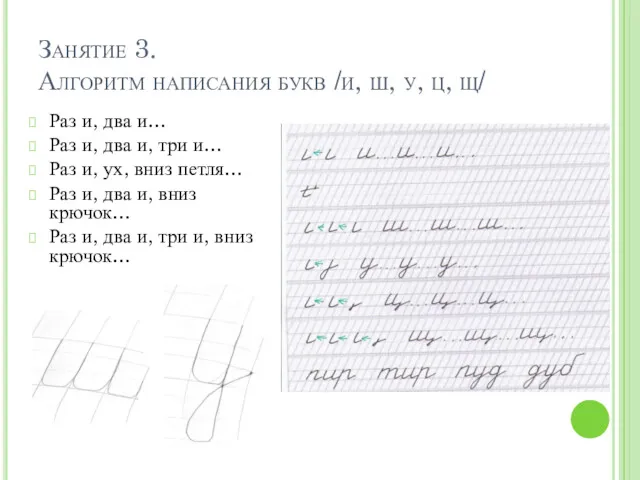 Занятие 3.
Алгоритм написания букв /и, ш, у, ц, щ/
Раз и, два и…
Раз и, два и, три и…
Раз и, ух, вниз петля…
Раз и, два и, вниз
крючок…
Раз и, два и, три и, вниз
крючок…
и...и...и...
ш...ш...ш...
у...у...у...
ц...ц...ц...
щ...щ...щ...
пир тир пуд дуб
ш у